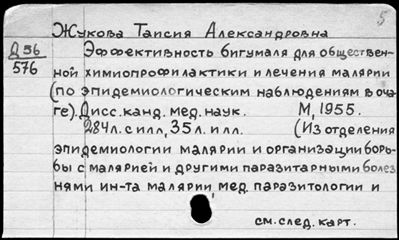 5
Жукова Таисия Александровна
Д 56 Эффективность бигумаля для обществен-
576 ной химиопрофилактики и лечения малярии
(по эпидемиологическим наблюдениям в оча-
ге). Дисс. канд. мед. наук. М, 1955.
284 л. с илл, 35 л. илл. (Из отделения
эпидемиологии малярии и организации борь-
бы с малярией и другими паразитарными болез
нями ин-та малярии, мед. паразитологии и
см. след. карт.